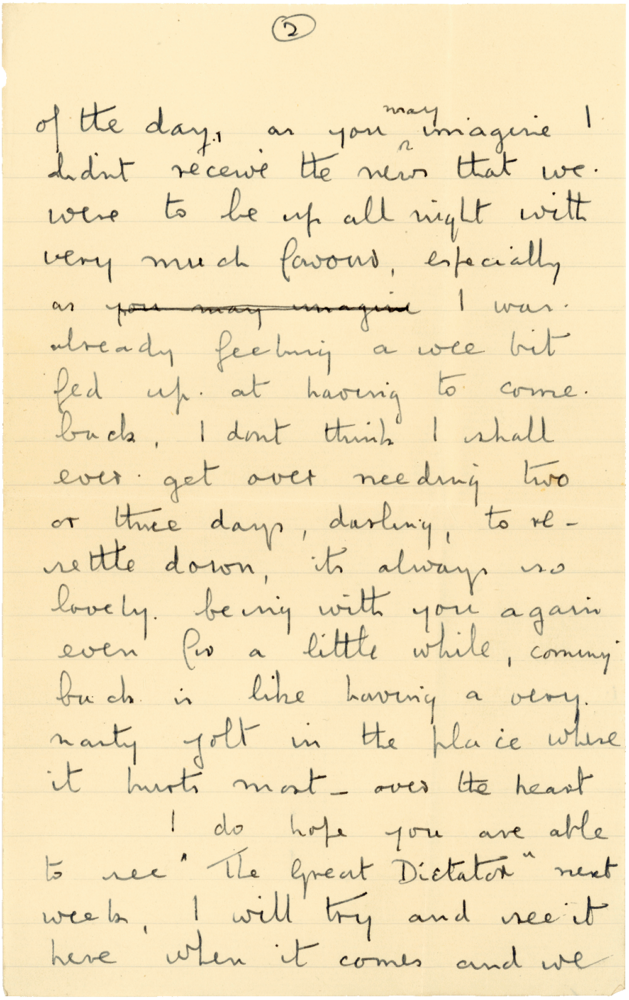 2
of the day, as you may imagine I
didnt receive the news that we.
were to be up all night with
very much favour, especially
as you may imagine I was.
already feeling a wee bit
fed up. at having to come.
back, I dont think I shall
ever. get over needing two
or three days, darling, to re-
settle down, its always so
lovely. being with you again
even for a little while, coming
back is like having a very.
nasty jolt in the place where
it hurts most - over the heart
I do hope you are able
to see "The Great Dictator" next
week, I will try and see it
here when it comes and we